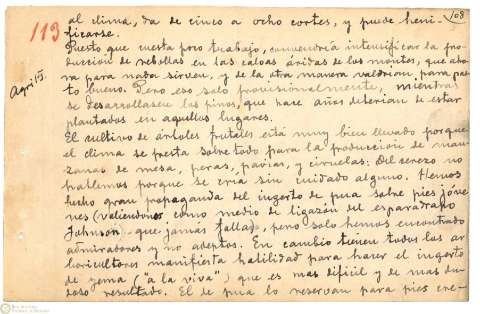 113
108
Agri 15.
al clima, da de cinco a ocho cortes, y puede heni-
ficarse.
Puesto que cuesta poco trabajo, convendría intensificar la pro-
duccion de rebollas en las calvas áridas de los montes, que aho-
ra para nada sirven, y de la otra manera valdrían para pas-
to bueno. Pero eso solo provisionalmente, mientras
se desarrollasen los pinos, que hace años deberían de estar
plantados en aquellos lugares.
El cultivo de árboles frutales está muy bien llevado porque
el clima se presta sobre todo para la producción de man-
zanas de mesa, peras, pavias, y ciruelas: Del cerezo no
hablemos porque se cria sin cuidado alguno. Hemos
hecho gran propaganda del ingerto de pua sobre pies jóve-
nes (valiendonos como medio de ligazón del esparadrapo
Johnson) que jamas falla, pero solo hemos encontrado
admiradores y no adeptos. En cambio tienen todos los ar-
boricultores manifiesta habilidad para hacer el ingerto
de yema ("a la viva") que es mas dificil y de mas du-
doso resultado. El de pua lo reservan para pies cre-